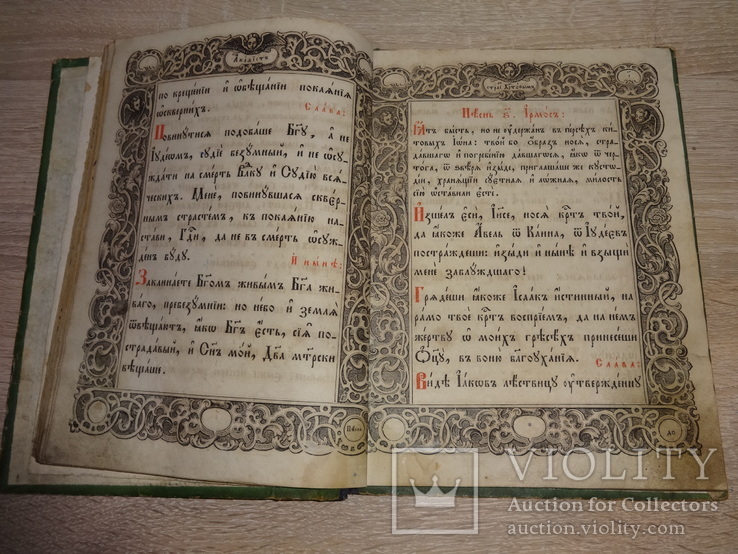 Акаѳістъ
по крещенїи и҆ ѡ҆бѣщанїи покаѧнїѧ
ѡ҆скверних̾.
Слава:
Повинꙋтисѧ подобаше Бг҃ꙋ, а҆ не
І҆ꙋдїѡм̾, сꙋдїе безꙋмный, и҆ не ѡ҆сꙋ-
ждати на смерть Влⷣкꙋ и҆ Сꙋдїю всѧ-
ческих̾. Мене, повинꙋвшасѧ сквер-
ным̾ страстем̾, къ покаѧнїю на-
стави, Гдⷭ҇и, да не въ смерть ѡ҆сꙋж-
ден̾ бꙋдꙋ.
И҆ нынѣ:
Закалаете Бг҃ом̾ живым̾ Бг҃а жи-
ваго, превезꙋмнїи: но небо и҆ землѧ
ѿвѣщают̾, ꙗ҆кѡ Бг҃ъ є҆сть, сїѧ по-
страдавый, и҆ Сн҃ъ мой, Два мт҃рски
вѣщаше.
Пѣснь
страⷭ҇ Хрⷭ҇товым̾
Пѣснь ѕ҃. І҆рмосъ:
Ꙗ҆тъ бысть, но не ᲂу҆держан̾ въ персѣхъ ки-
товых̾ І҆ѡна: твой бо ѡ҆браз̾ носѧ, стра-
давшагѡ и҆ погребенїю давшагѡсѧ, ꙗ҆кѡ ѿ чер-
тога, ѿ ѕвѣрѧ и҆зыде, приглашаше же кꙋстѡ-
дїи, хранѧщїи сꙋетнаѧ и҆ лѡжнаѧ, милость
сїю ѡ҆ставили є҆сте.
И҆зшел̾ є҆си, І҆и҃се, носѧ крⷭ҇тъ твой,
ꙗ҆коже А҆вель ѿ Каина, ѿ І҆ꙋдей
постраждеши: и҆зыди и҆ нынѣ и҆ взыщи
мене заблꙋждшаго!
Грѧдеши ꙗ҆коже І҆саак̾ и҆стинный, на
рамо твое крⷭ҇тъ воспрїем̾, да на нем̾
жертвꙋ ѡ҆ моих̾ грѣсѣх̾ принесеши
Ѻ҆ц҃ꙋ, въ воню благоꙋханїѧ.
Слава:
Видѣ І҆аков̾ лѣствицꙋ ᲂу҆твержденнꙋ
VIOLITY
Auction for Collectors
auction.violity.com